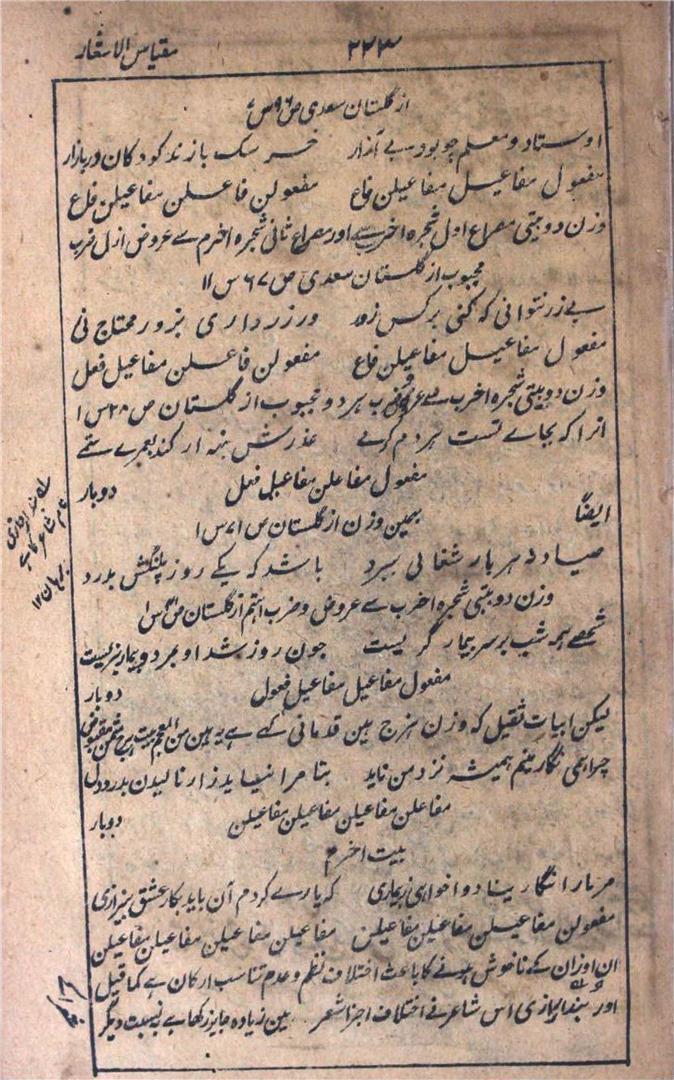 مقیاس الاشعار ۲۲۳
از گلستان سعدی ص ۹۶ س ۶
اوستاد و معلم چو بود بے آزار خرسک بازند کودکان در بازار
مفعول مفاعیل مفاعیلن فاع مفعولن فاعلن مفاعیلن فاع
وزن دو بیتی مصراع اول شجرہ اخرب سے اور مصراع ثانی شجرہ اخرم سے عروض ازل ضرب
مجبوب از گلستان سعدی ص ۶۷ س ۱۱
بے زر نتوانی کہ کنی بر کس زور ور زر داری بزور محتاج نی
مفعول مفاعیل مفاعیلن فاع مفعولن فاعلن مفاعیل فعل
وزن دو بیتی شجرہ اخرب سے عروض و ضرب ہر دو مجبوب از گلستان ص ۲۸ س ۱
انرا کہ بجاے تست ہر دم کرمے عذرش بنہ ار کند بعمرے ستمے
مفعول مفاعلن مفاعیل فعل دوبار
ایضًا بہمین وزن از گلستان س ۷۱ س ۱
صیاد نہ ہر بار شغالی ببرد باشد کہ یکے روز پلنگش بدرد
وزن دو بیتی شجرہ اخرب سے عروض و ضرب اہتم از گلستان
شخصے ہمہ شب بر سر بیمار گریست چون روز شد او بمرد و بیمار بزیست
مفعول مفاعیل مفاعیل فعول دوبار
لیکن ابیات ثقیل کہ وزن ہزج مین قدمانی کہے ہے یہ ہین من المعجم بیت
چراہمی نگارینم ہمیشہ نزد من ناید بتا مرا نیاید زار نالیدن بدرد دل
مفاعلن مفاعیلن مفاعیلن مفاعیلن دوبار
بیت اخرم
مر مارا نگارینا دو اخواہی کہ یارے کردم آن باید بکار عشق
مفعولن مفاعیلن مفاعیلن مفاعیلن مفاعیلن مفاعیلن مفاعیلن مفاعیلن
ان اوزان کے ناخوش ہونے کا باعث اختلاف نظم و عدم تناسب ارکان ہے کما قیل
اور اس شاعر نے اختلاف اجزا شعر مین زیادہ جایز رکھا ہے نسبت دیگر